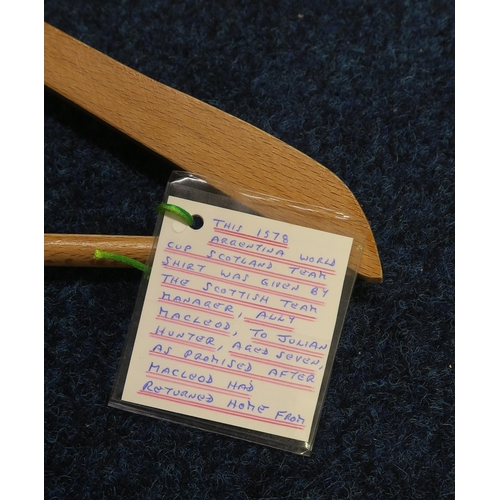 THIS 1978
ARGENTINA WORLD
CUP SCOTLAND TEAM
SHIRT WAS GIVEN BY
THE SCOTTISH TEAM
MANAGER, ALLY
MACLEOD, TO JULIAN
HUNTER, AGED SEVEN,
AS PROMISED AFTER
MACLEOD HAD
RETURNED HOME FROM